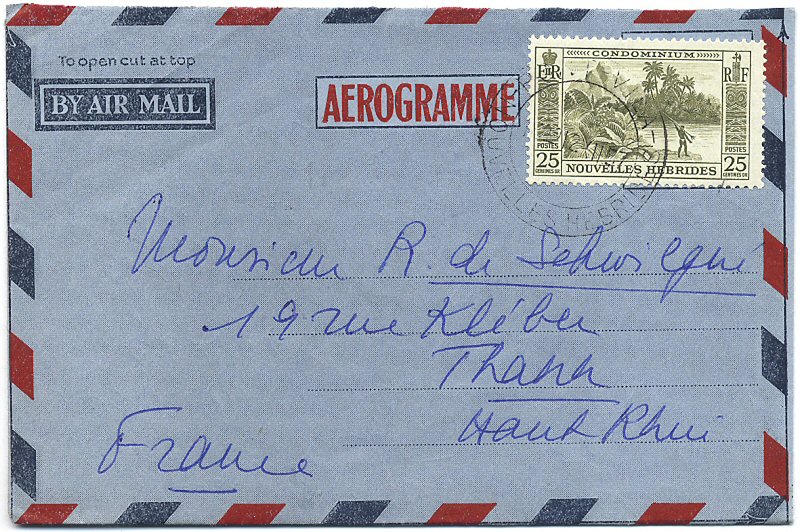 To open cut at top
BY AIR MAIL
AEROGRAMME
CONDOMINIUM
EIIR
RF
POSTES
POSTES
25
CENTIMES OR
25
CENTIMES OR
NOUVELLES HEBRIDES
NOUVELLES HEBRIDES
Monsieur R. de Schwilgué
19 rue Kléber
Thann
Haut Rhin
France